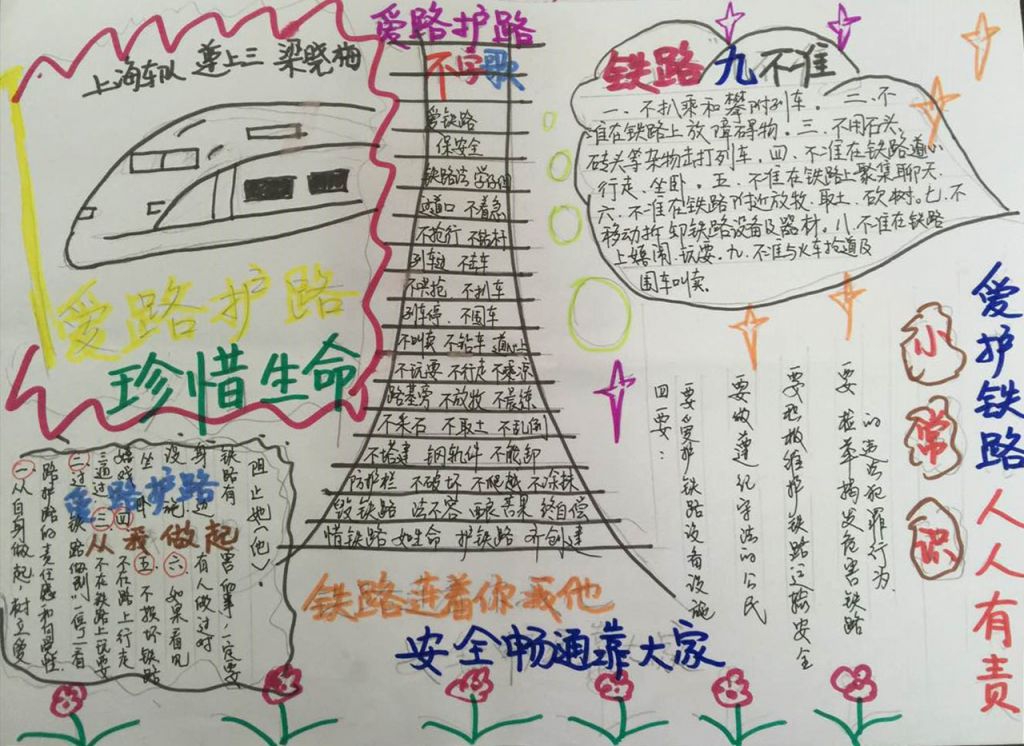 上海车队 莲上三 梁晓梅
爱路护路
珍惜生命
爱路护路
不字歌
爱铁路
保安全
过道口 不着急
不抢行
列车过 不击车
不扒车
列车停 不围车
不叫卖 不钻车 道心上
不玩耍 不行走 不乘凉
路基旁 不放牧 不晨练
不采石 不取土 不乱倒
不搭建 钢轨件 不能卸
防护栏 不破坏 不爬越 不涂抹
毁铁路 法不容 酿苦果 终自偿
惜铁路 如生命 护铁路 齐创建
铁路连着你我他
安全畅通靠大家
铁路九不准
一、不扒乘和攀附列车。二、不
准在铁路上放障碍物。三、不用石头、
砖头等杂物击打列车。四、不准在铁路道心
行走、坐卧。五、不准在铁路上聚集聊天。
六、不准在铁路附近放牧、取土、砍树。七、不
移动拆卸铁路设备及器材。八、不准在铁路
上嬉闹、玩耍。九、不准与火车抢道及
围车叫卖
爱护铁路
人人有责
小常识
要检举揭发危害铁路
的违法犯罪行为
要积极维护铁路运输安全
要做遵纪守法的公民
要爱护铁路设备设施
四要：
爱路护路
从我做起
一、从自身做起，树立爱
路护路的责任感和自觉性
二、过铁路做到“一停二看
三通过
三、不在铁路上玩耍
嬉戏
四、不在路上行走
坐卧
五、不损坏铁路
设施
六、如果看见
身边有人做过对
铁路有害的事，一定要
阻止她（他）。